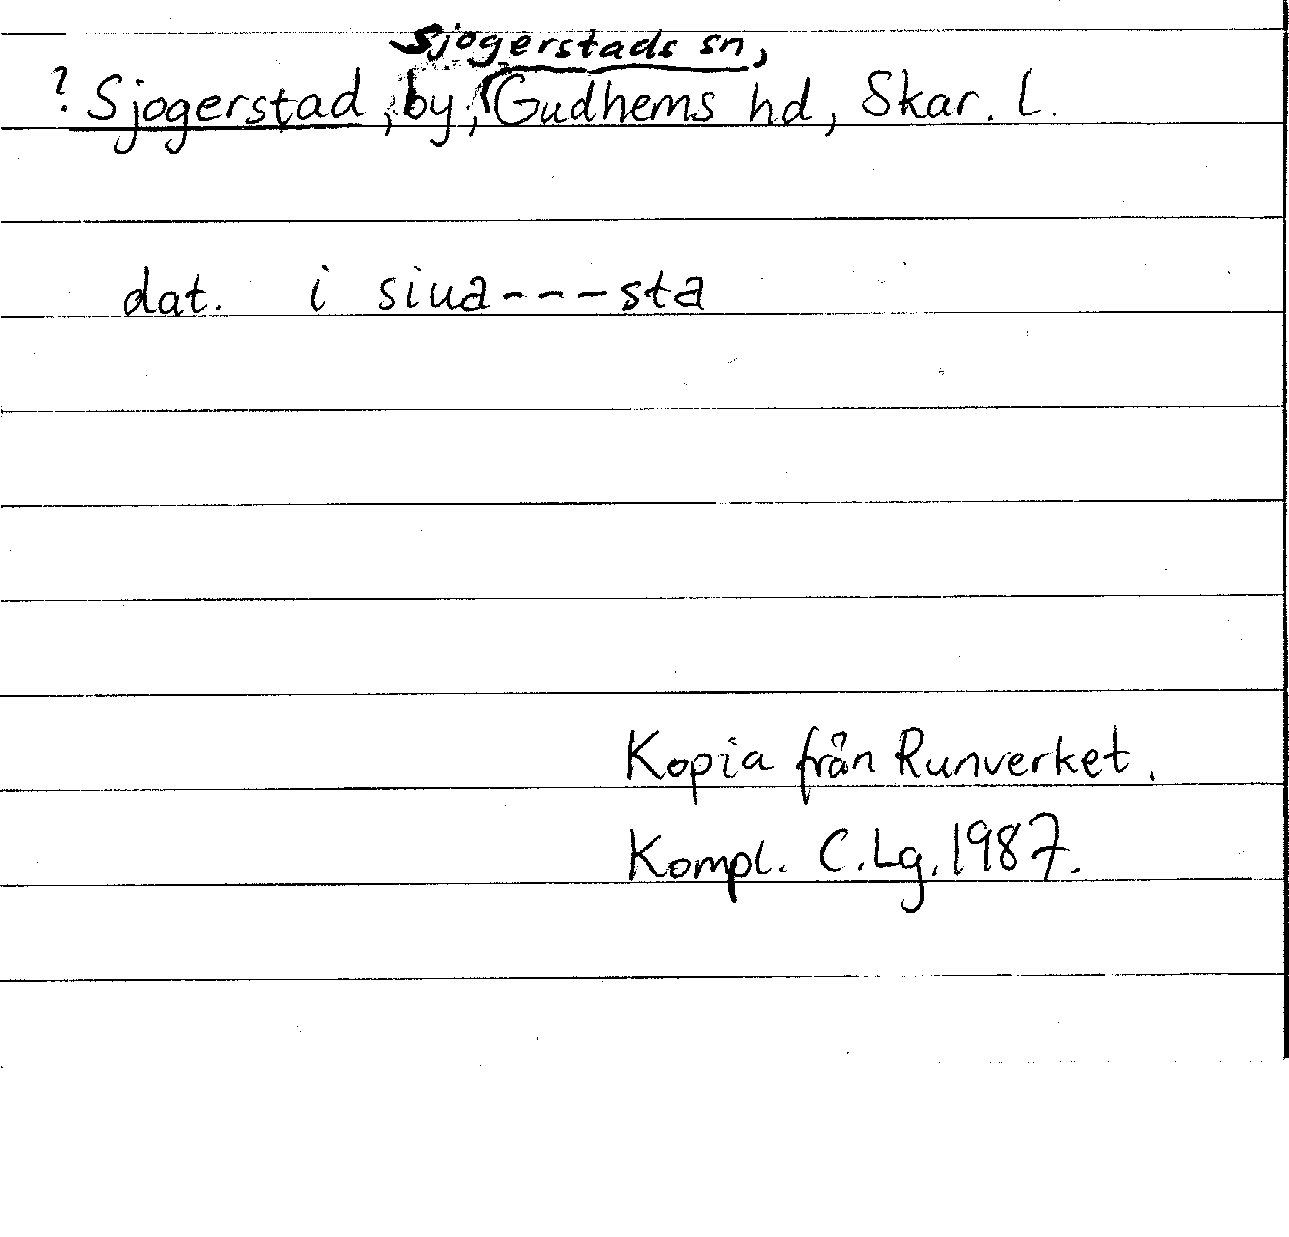 Sjogerstads sn,
? Sjogerstad, by, Gudhems hd, Skar. l.
dat. i siua---sta
Kopia från Runverket.
Kompl. C.Lg. 1987.